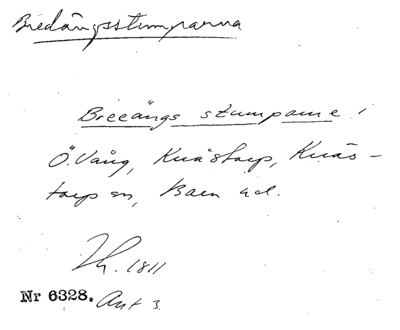 Bredängsstumparna
Breeängs stumparne i
Ö. Vång, Knästorp, Knäs-
torps sn, Bara hd.
Lh. 1811
Nr 6328. Akt 3.